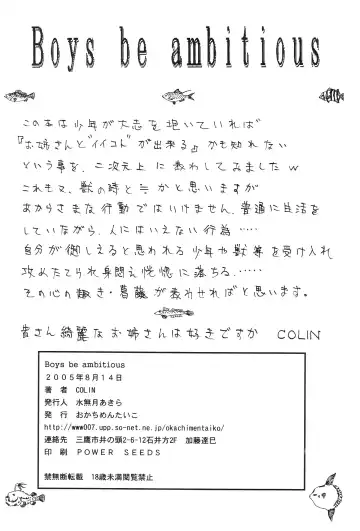 Boys be ambitious
この本は少年が大志を抱いていれば
『お姉さんと"イイコト"が出来る』かも知れない
という事を、二次元上に表わしてみましたw
これもマ、獣の時と≒かと思いますが
あからさまな行動ではいけません。普通に生活を
していながら、人にはいえない行為……
自分が御しえると思われる少年や獣等を受け入れ
攻めたてられ身悶え恍惚に落ちる……
その心の趣き・葛藤が表わせればと思います。
皆さん綺麗なお姉さんは好きですか COLIN
Boys be ambitious
2005年8月14日
著 者 COLIN
発行人 水無月あきら
発 行 おかちめんたいこ
http://www007.upp.so-net.ne.jp/okachimentaiko/
連絡先 三鷹市井の頭2-6-12石井方2F 加藤達巳
印 刷 POWER SEEDS
禁無断転載 18歳未満閲覧禁止